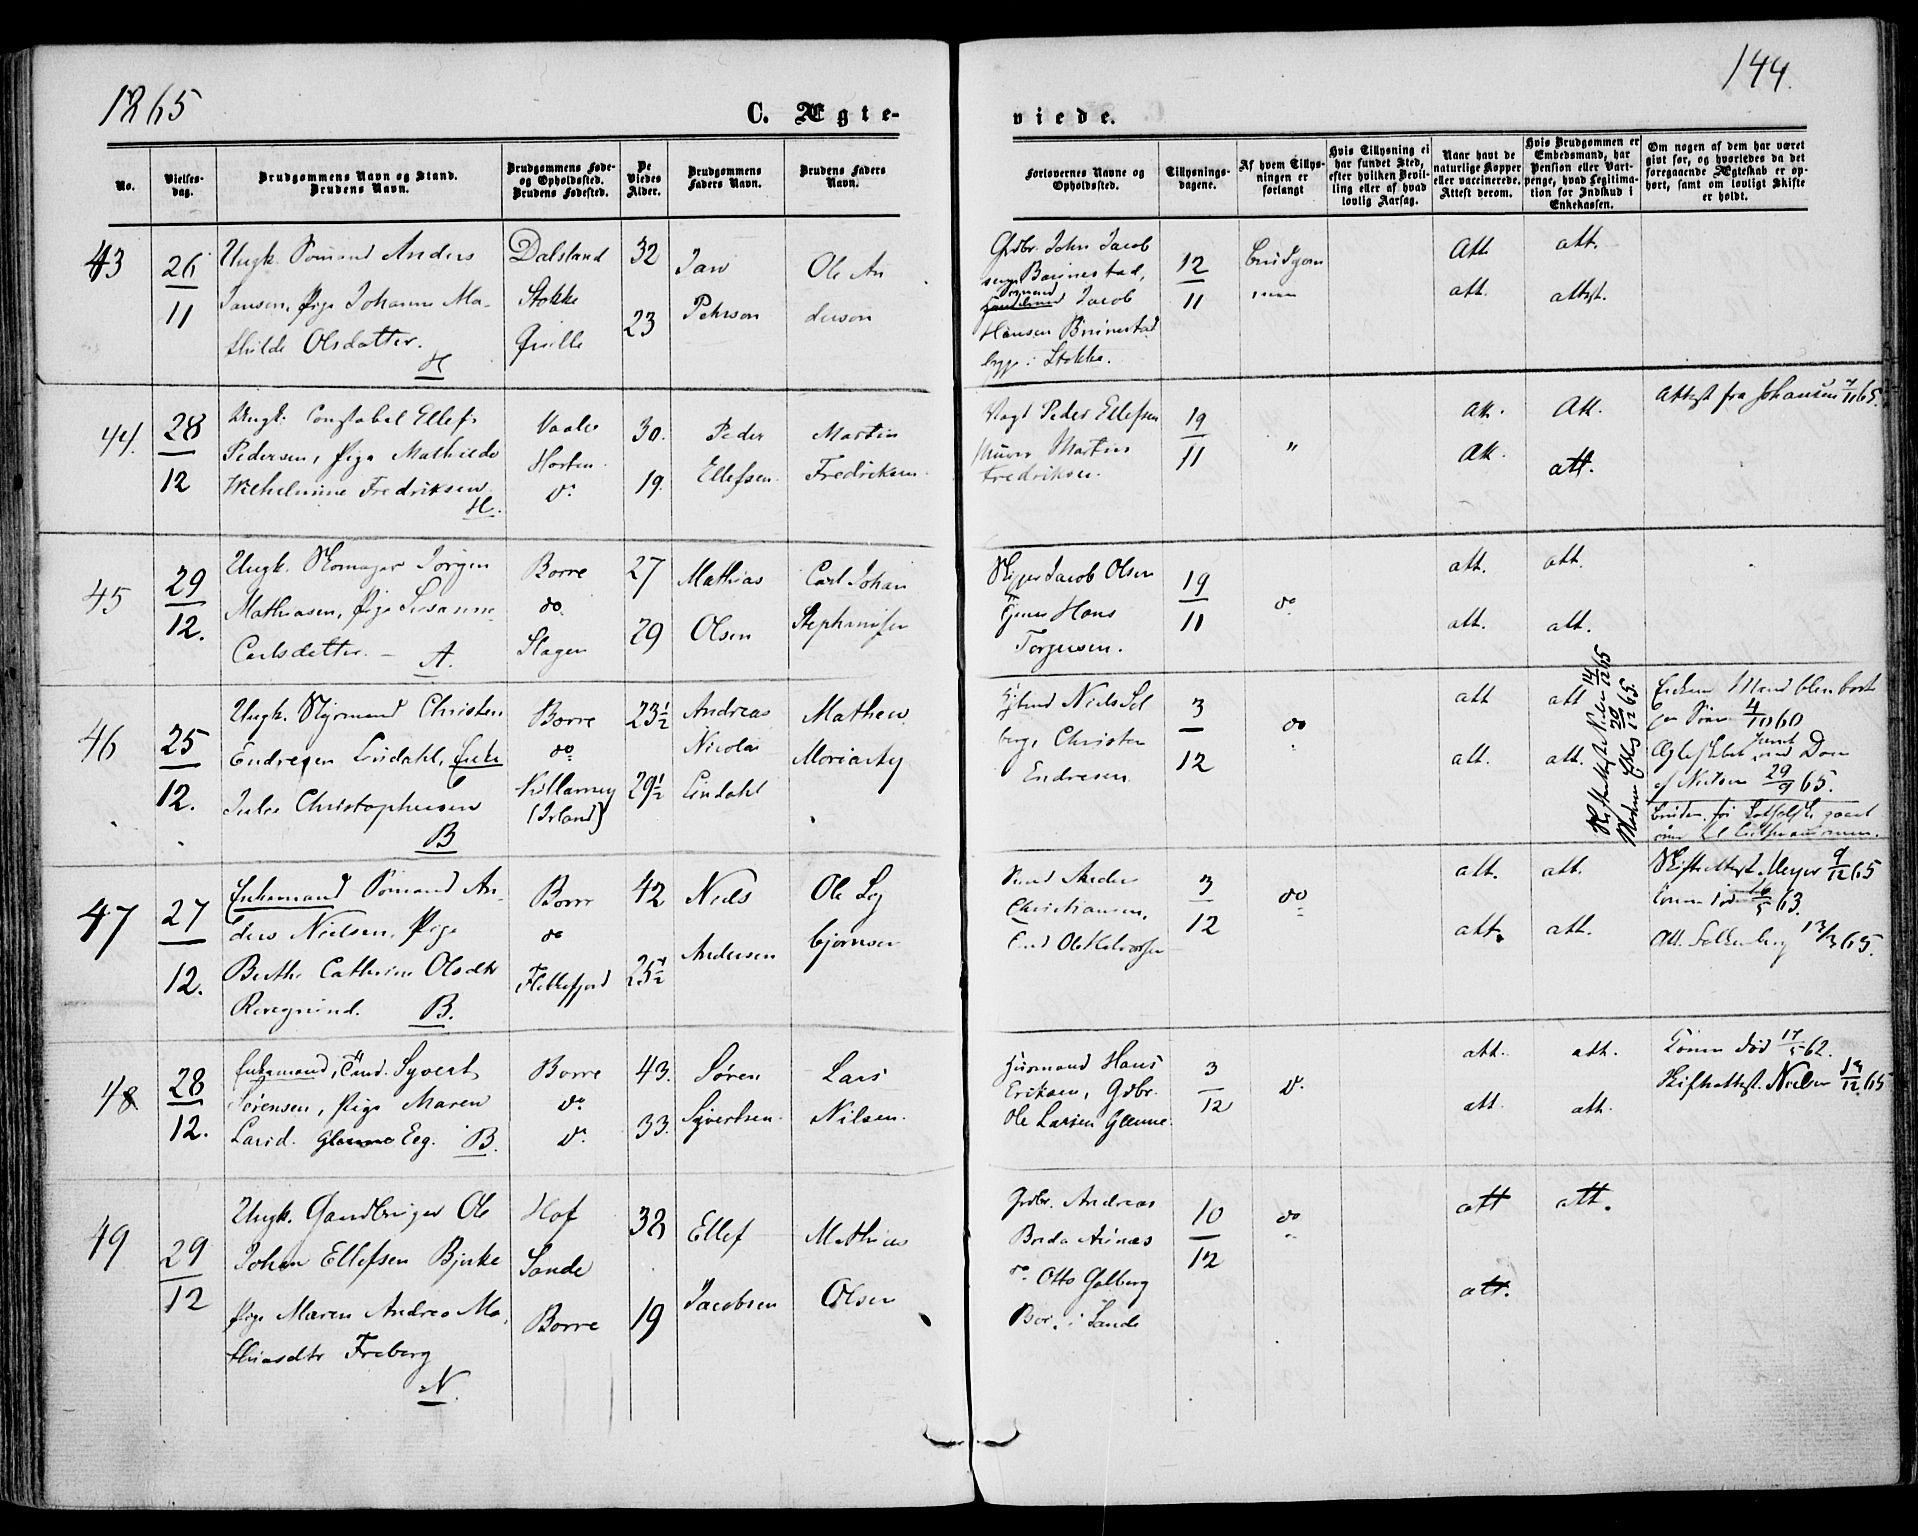 1865
144.
C. Ægte-
viede.
No.
Vielses-
dag.
Brudgommens Navn og Stand.
Brudens Navn.
Brudgommens Føde-
og Opholdssted.
Brudens Fødested.
De
Viedes
Alder.
Brudgommens
Faders Navn.
Brudens Faders
Navn.
Forlovernes Navne og
Opholdssted.
Tillysnings-
dagene.
Af hvem Tillys-
ningen er
forlangt
Hvis Tillysning ei
har fundet Sted,
efter hvilken Bevil-
ling eller af hvad
lovlig Aarsag.
Naar havt de
naturlige Kopper
eller vaccinerede.
Attest derom.
Hvis Brudgommen er
Embedsmand, har
Pension eller Vart-
penge, hvad Legitima-
tion for Indskud i
Enkekassen.
Om nogen af dem har været
givt før, og hvorledes da det
foregaaende Ægteskab er op-
hørt, samt om lovligt Skifte
er holdt.
43
26
11
Ungk. Sømand Anders
Jansen, Pige Johanne Ma-
thilde Olsdatter.
H
Dalsland
Stokke
Qville
32
23
Jan
Pehrson
Ole An
derson
Gdbr. John Jacob
sen Barnestad,
Sømand
Jacob
Hansen
bygg i Stokke.
12
11
Brudgom
men
Att
att.
att.
attest.
44.
28
12
Ungk. Constabel Ellef
Pedersen, Pige Mathilde
Wilhelmine Fredriksen
H.
Vaale
Horten
do
30.
19.
Peder
Ellefsen
Martin
Fredriksen
Vagt Peder Ellefsen
Murer Martin
Fredriksen.
19
11
"
Att.
Att.
Att.
att.
Attest fra Johansen 7/11 65.
45
29
12.
Ungk. Skomager Jørgen
Mathiasen, Pige Susanne
Carlsdatter. - A.
Borre
do.
Slagen
27
29
Mathias
Olsen
Carl Johan
Stephansen
Skipper Jacob Olsen
Hans
Torgersen.
19
11
do
att.
att.
att.
att.
46
25
12.
Ungk. Styrmand Christen
Endresen Lindahl, Enke
Julie Christophersen
B
Borre
do
Killarney
(Irland)
23½
29½
Andreas
Nicolai
Lindahl
Mathew
Moriarty
Niels Sol
berg, Christen
Endresen
3
12
do
att
att.
att
att.
Skifteattest Nielsen 14/12 65
20/12 65.
Enkens Mand blev borte
paa Søen 4/10 60
Ægteskabet ved Dom
af Nielsen 29/9 65.
47
27
12.
Enkemand Sømand An-
ders Nielsen, Pige
Berthe Cathrine Olsdtr
Revegrind. B.
Borre
do
Flekkefjord
42
25½
Niels
Andersen
Ole Leg
bjørnsen
Anders
Christiansen,
Ole Halvorsen
3
12
do
att.
att.
att.
att.
Skifteattest. Meyer 9/12 65
Konen død 16/5 63.
Att. Falkenberg 13/3 65.
48
28
12.
Enkemand, Syvert
Sørensen, Pige Maren
Larsd. Eeg. B.
Borre
do
do
43.
33.
Søren
Syvertsen
Lars
Nilsen.
Husmand Hans
Eriksen, Gdbr.
Ole Larsen Glenne
3
12
do
att.
att.
att.
att.
Konen død 17/5 62.
Skifteattest. Nielsen 13/12 65
49
29
12
Ungk. Gaardbruger Ole
Johan Ellefsen Bjerke
Pige Maren Andrea Ma-
thiasdtr Freberg
N.
Hof
Sande
Borre
38
19
Ellef
Jacobsen
Mathias
Olsen
Gdbr. Andreas
do Otto Galberg
i Sande
10
12
do
att
att.
att.